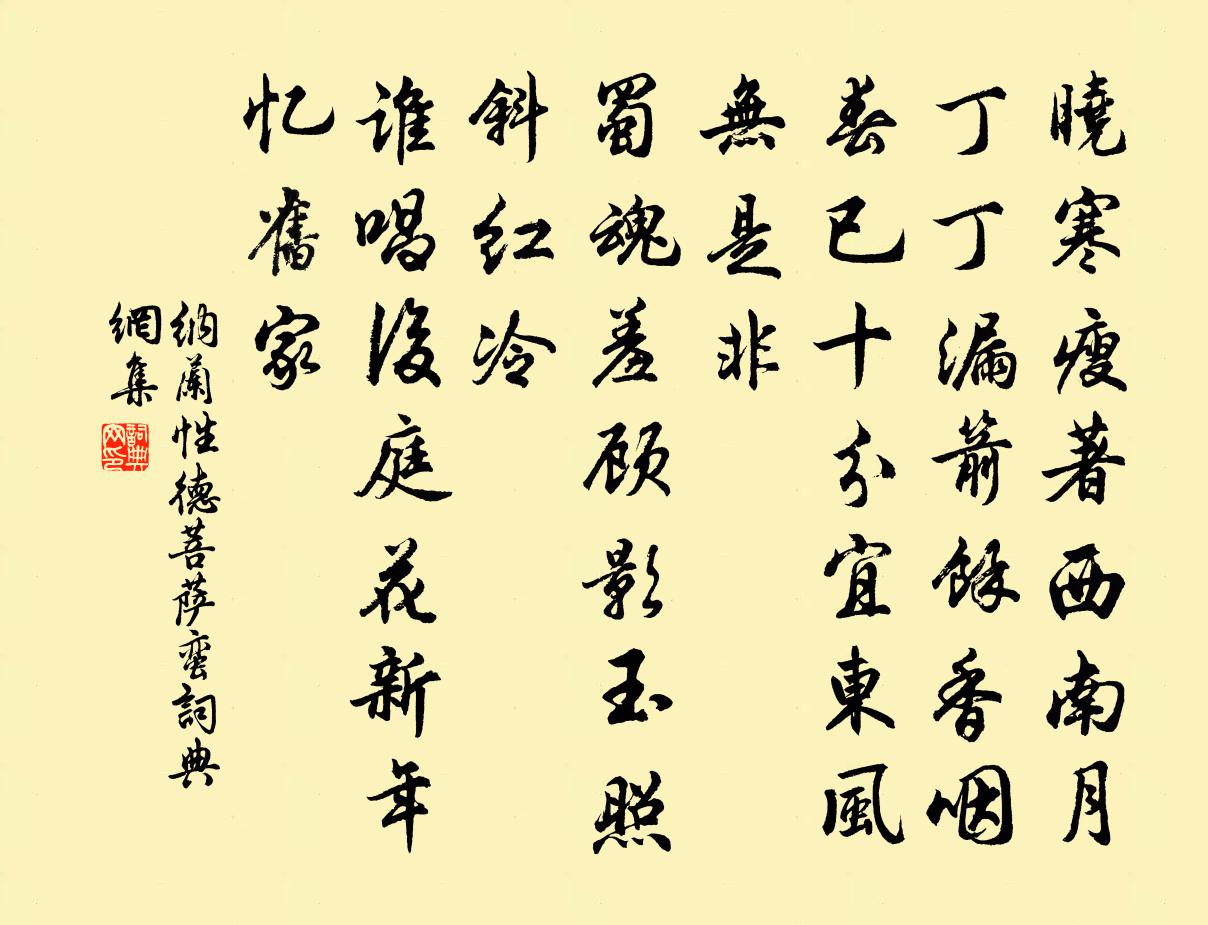 曉寒瘦著西南月
丁丁漏箭餘香咽
春已十分宜東風
無是非
蜀魂羞顾影玉照
斜红冷
誰唱後庭花新年
忆舊家
納蘭性德菩萨蛮詞典
網集
詞典網印